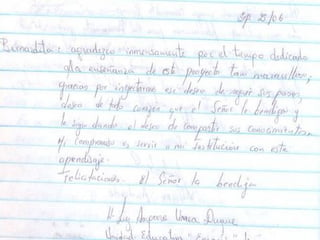 Sep 25/06
Bernardita: agradezco inmensamente por el tiempo dedicado
a la enseñanza de este proyecto tan maravilloso,
gracias por inyectarme ese deseo de seguir sus pasos,
deseo de todo corazón que el Señor le bendiga y
le siga dando el deseo de compartir sus conocimientos
Mi compromiso es servir a mi Institución con este
aprendizaje.
Felicitaciones. El Señor la bendiga
Amparo Duque
Unidad Educativa